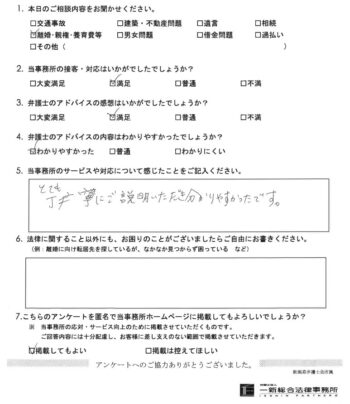 1. 本日のご相談内容をお聞かせください。
□交通事故 □建築・不動産問題 □遺言 □相続
☑離婚・親権・養育費等 □男女問題 □借金問題 □過払い
□その他（ ）
2. 当事務所の接客・対応はいかがでしたでしょうか？
□大変満足 ☑満足 □普通 □不満
3. 弁護士のアドバイスの感想はいかがでしたでしょうか？
□大変満足 ☑満足 □普通 □不満
4. 弁護士のアドバイスの内容はわかりやすかったでしょうか？
☑わかりやすかった □普通 □わかりにくい
5. 当事務所のサービスや対応について感じたことをご記入ください。
とても
丁寧にご説明いただき分かりやすかったです。
6. 法律に関すること以外にも、お困りのことがございましたらご自由にお書きください。
（例：離婚に向け転居先を探しているが、なかなか見つからず困っている など）
7.こちらのアンケートを匿名で当事務所ホームページに掲載してもよろしいでしょうか？
※ 当事務所の応対・サービス向上のために掲載させていただくものです。
ご回答内容には十分配慮し、お客様に差し支えのない範囲で掲載させていただきます。
☑掲載してもよい □掲載は控えてほしい
アンケートへのご協力ありがとうございました。
新潟県弁護士会所属
一新総合法律事務所
ISSHIN PARTNERS